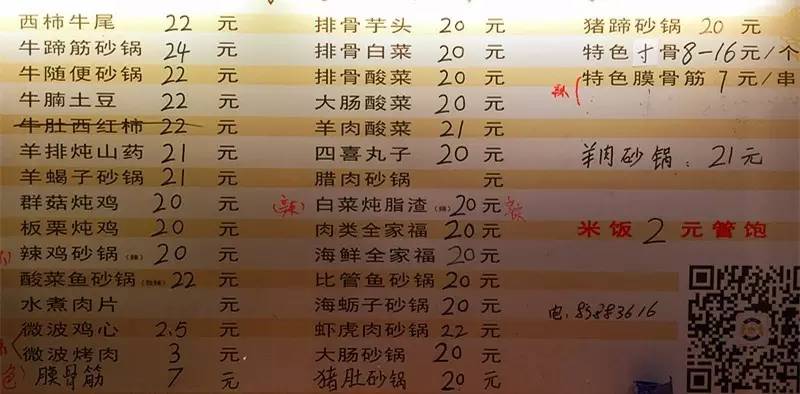 西柿牛尾 22 元
牛蹄筋砂锅 24 元
牛随便砂锅 22 元
牛腩土豆 22 元
牛肚西红柿 22 元
羊排炖山药 21 元
羊蝎子砂锅 21 元
群菇炖鸡 20 元
板栗炖鸡 20 元
辣鸡砂锅(辣) 20 元
酸菜鱼砂锅 22 元
水煮肉片 元
微波鸡心 2.5 元
微波烤肉 3 元
膜骨筋 7 元
排骨芋头 20 元
排骨白菜 20 元
排骨酸菜 20 元
大肠酸菜 20 元
羊肉酸菜 21 元
四喜丸子 20 元
腊肉砂锅 元
白菜炖脂渣(辣) 20 元
肉类全家福 20 元
海鲜全家福 20 元
比管鱼砂锅 20 元
海蛎子砂锅 20 元
虾虎肉砂锅 22 元
大肠砂锅 20 元
猪肚砂锅 20 元
猪蹄砂锅 20 元
特色寸骨 8-16元/个
特色膜骨筋 7元/串
羊肉砂锅:21元
米饭2元管饱
电:83883616